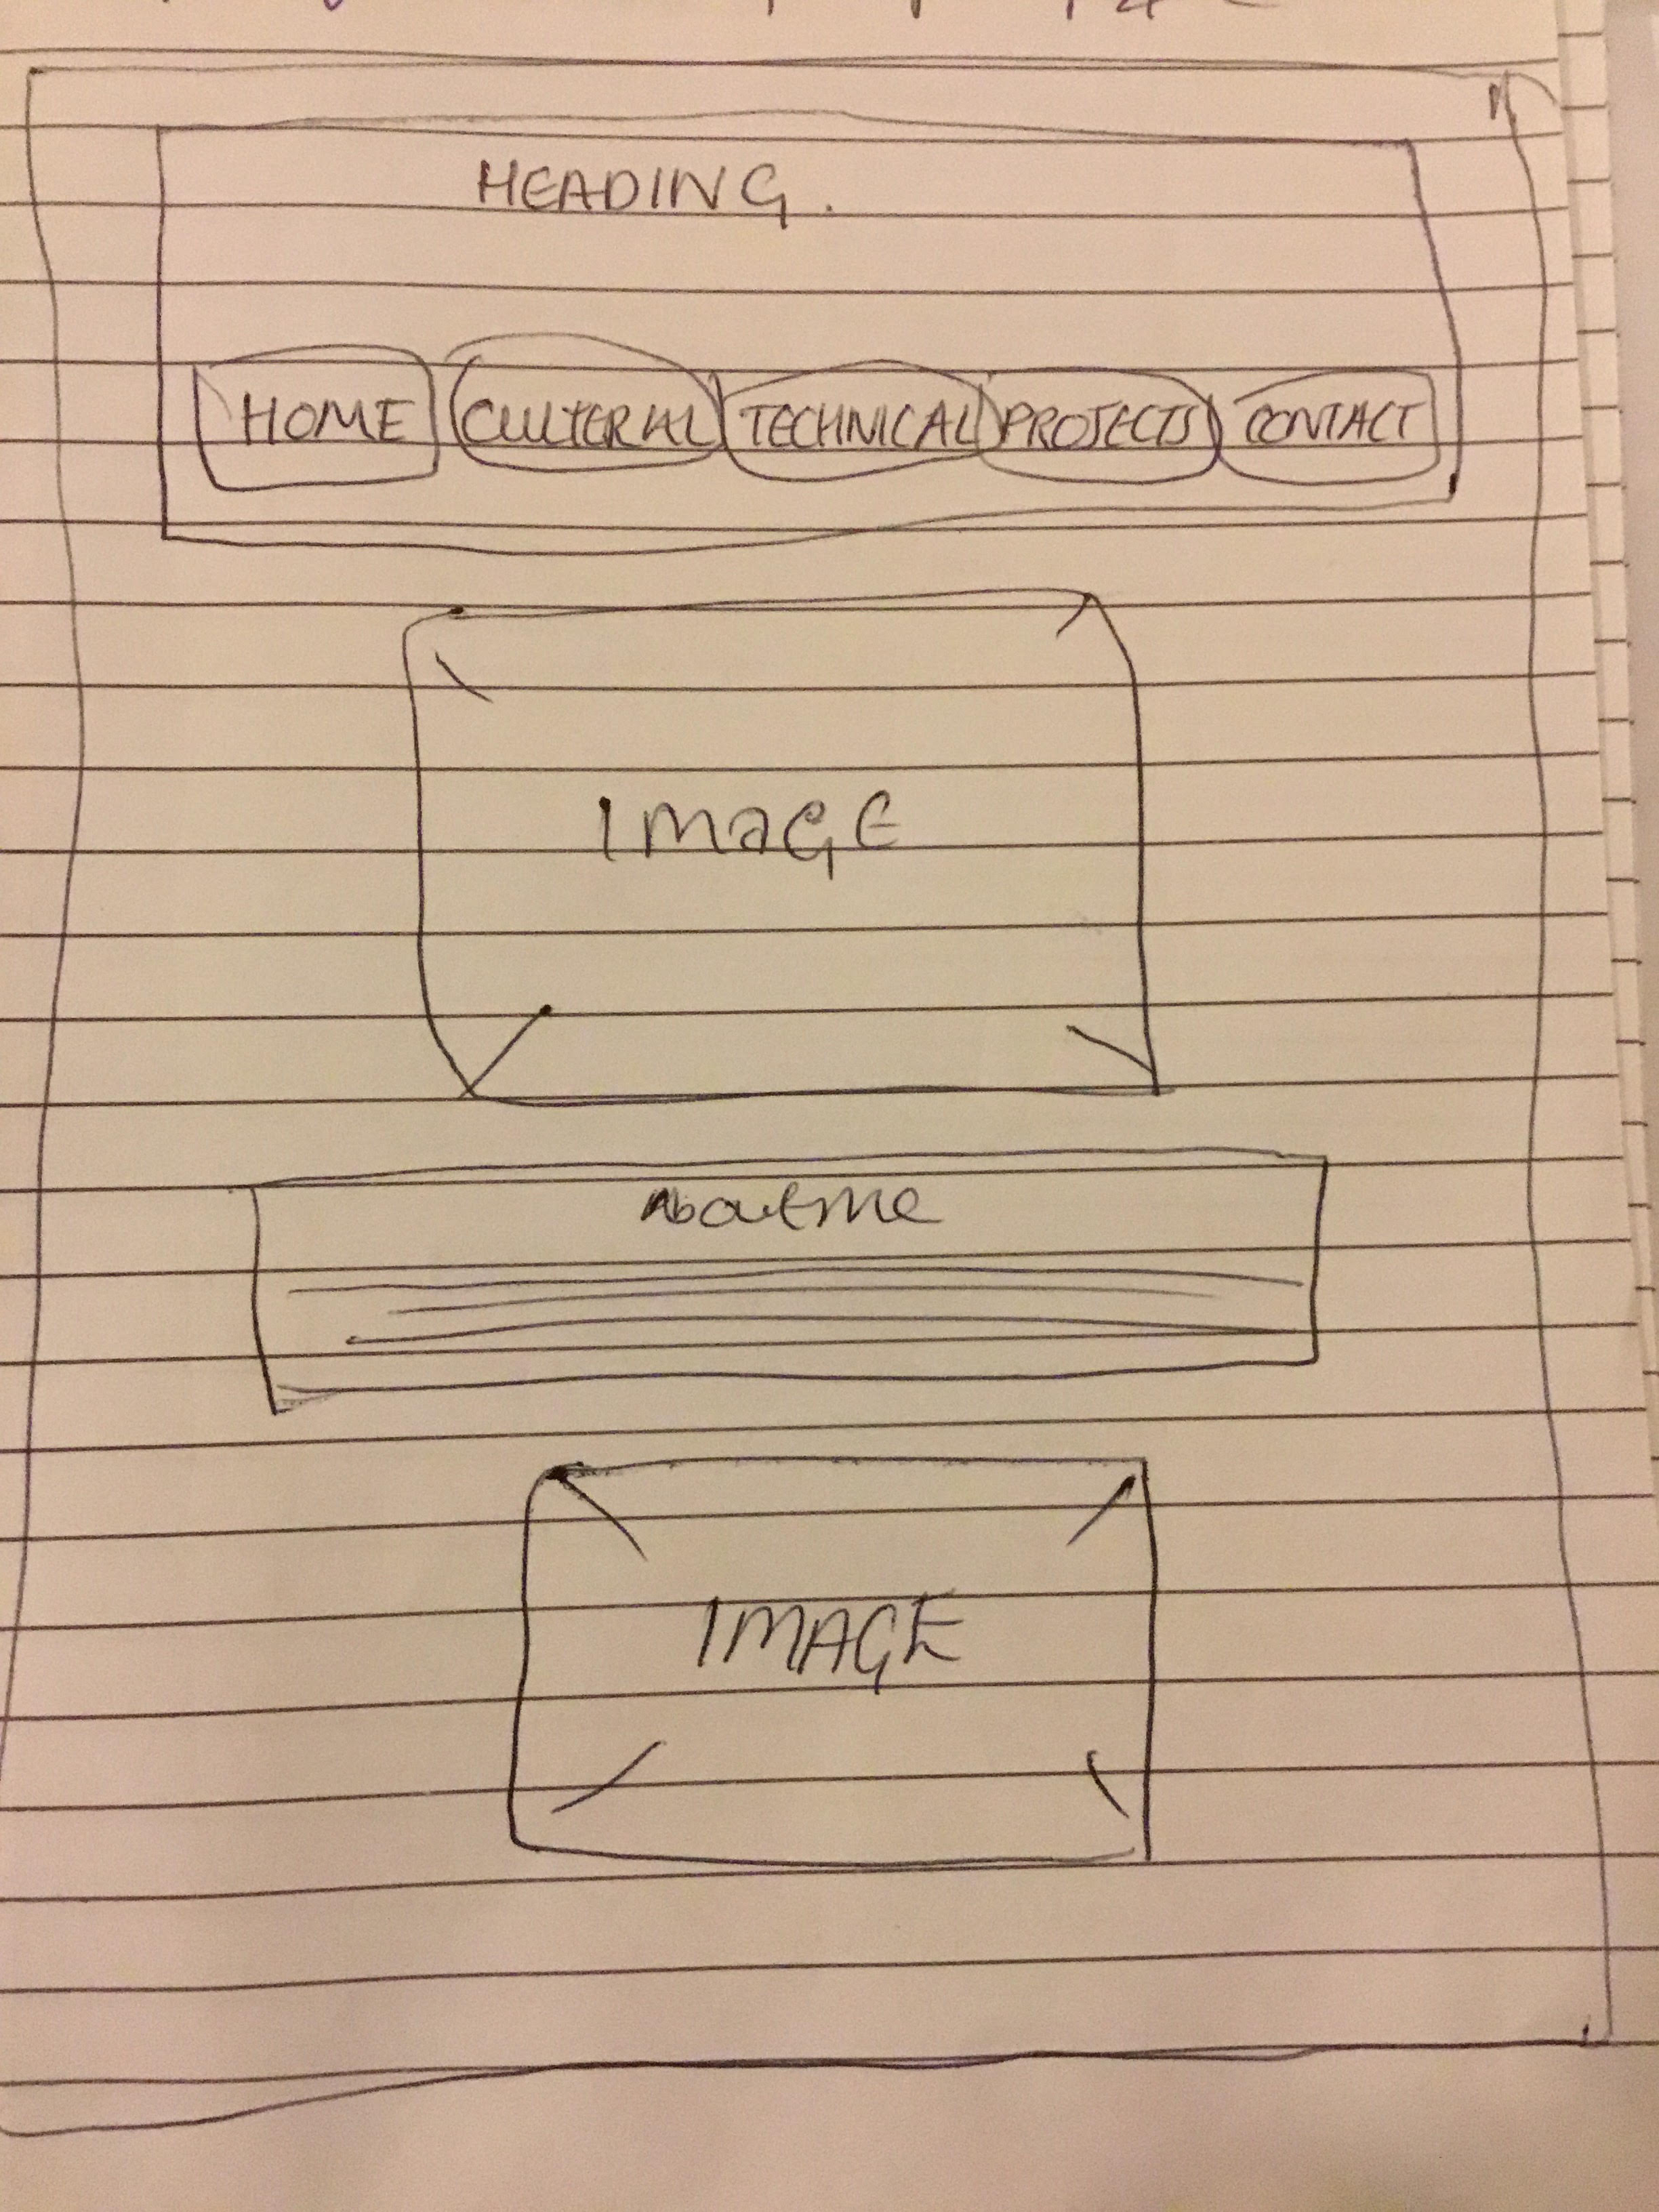 HEADING.
HOME CULTERAL TECHNICAL PROJECTS CONTACT
IMaGE
About me
IMAGE